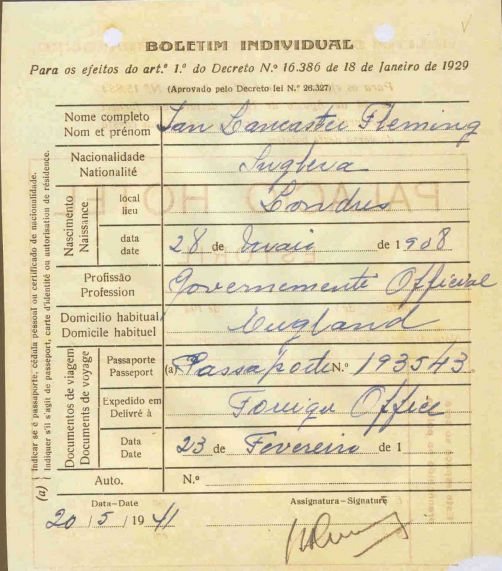 BOLETIM INDIVIDUAL
Para os efeitos do art.º 1.º do Decreto N.º 16.386 de 18 de Janeiro de 1929
(Aprovado pelo Decreto lei N.º 26.327)
Nome completo Ian Lancaster Fleming
Nom et prénom
Nacionalidade Inglesa
Nationalité
Nascimento
Naissance
local Londres
lieu
data 28 de Maio de 1908
date
Profissão Governemente Official
Profession
Domicilio habitual England
Domicile habituel
Documentos de viagem
Documents de voyage
Passaporte (a) Passaporte N.º 193543
Passeport
Expedido em Foreign Office
Delivré à
Data 23 de Fevereiro de 1
Date
Auto. N.º
(a) Indicar se é passaporte, cédula pessoal ou certificado de nacionalidade.
Indiquer s'il s'agit de passeport, carte d'identité ou autorisation de résidence.
Data-Date Assignatura-Signature
20/5/1941
PALACIO HOTEL